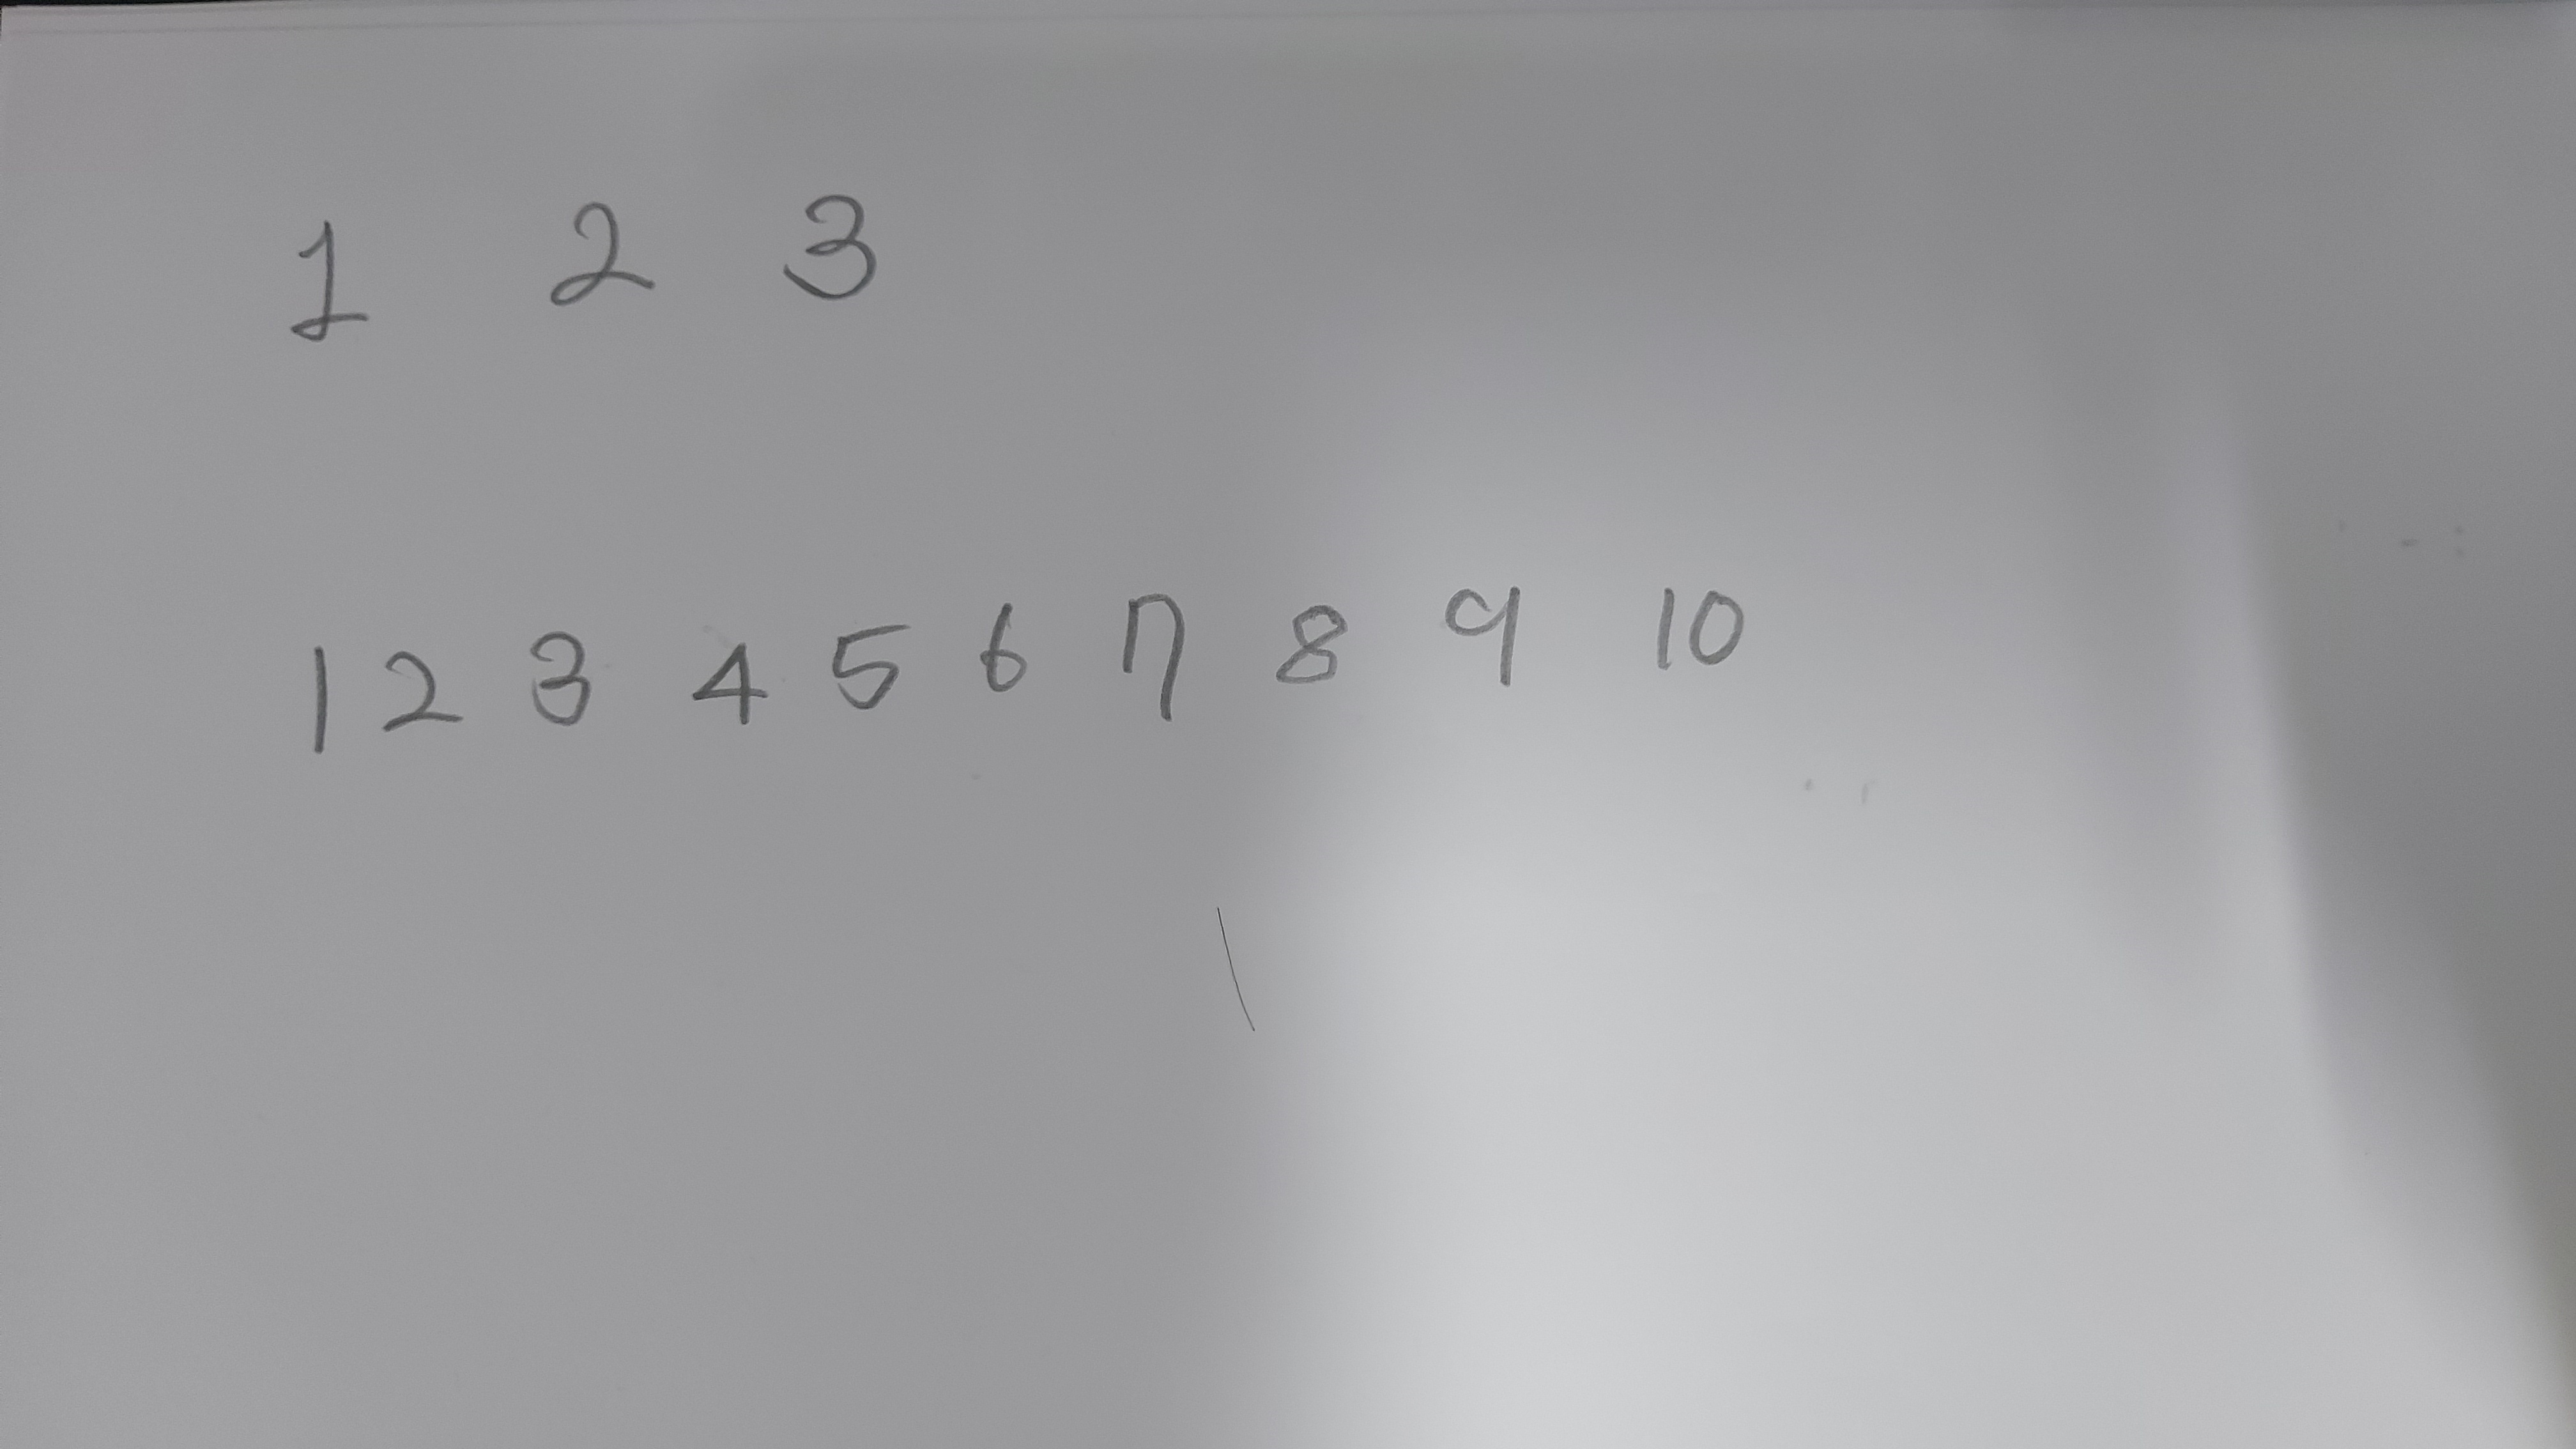 1 2 3
1 2 3 4 5 6 7 8 9 10